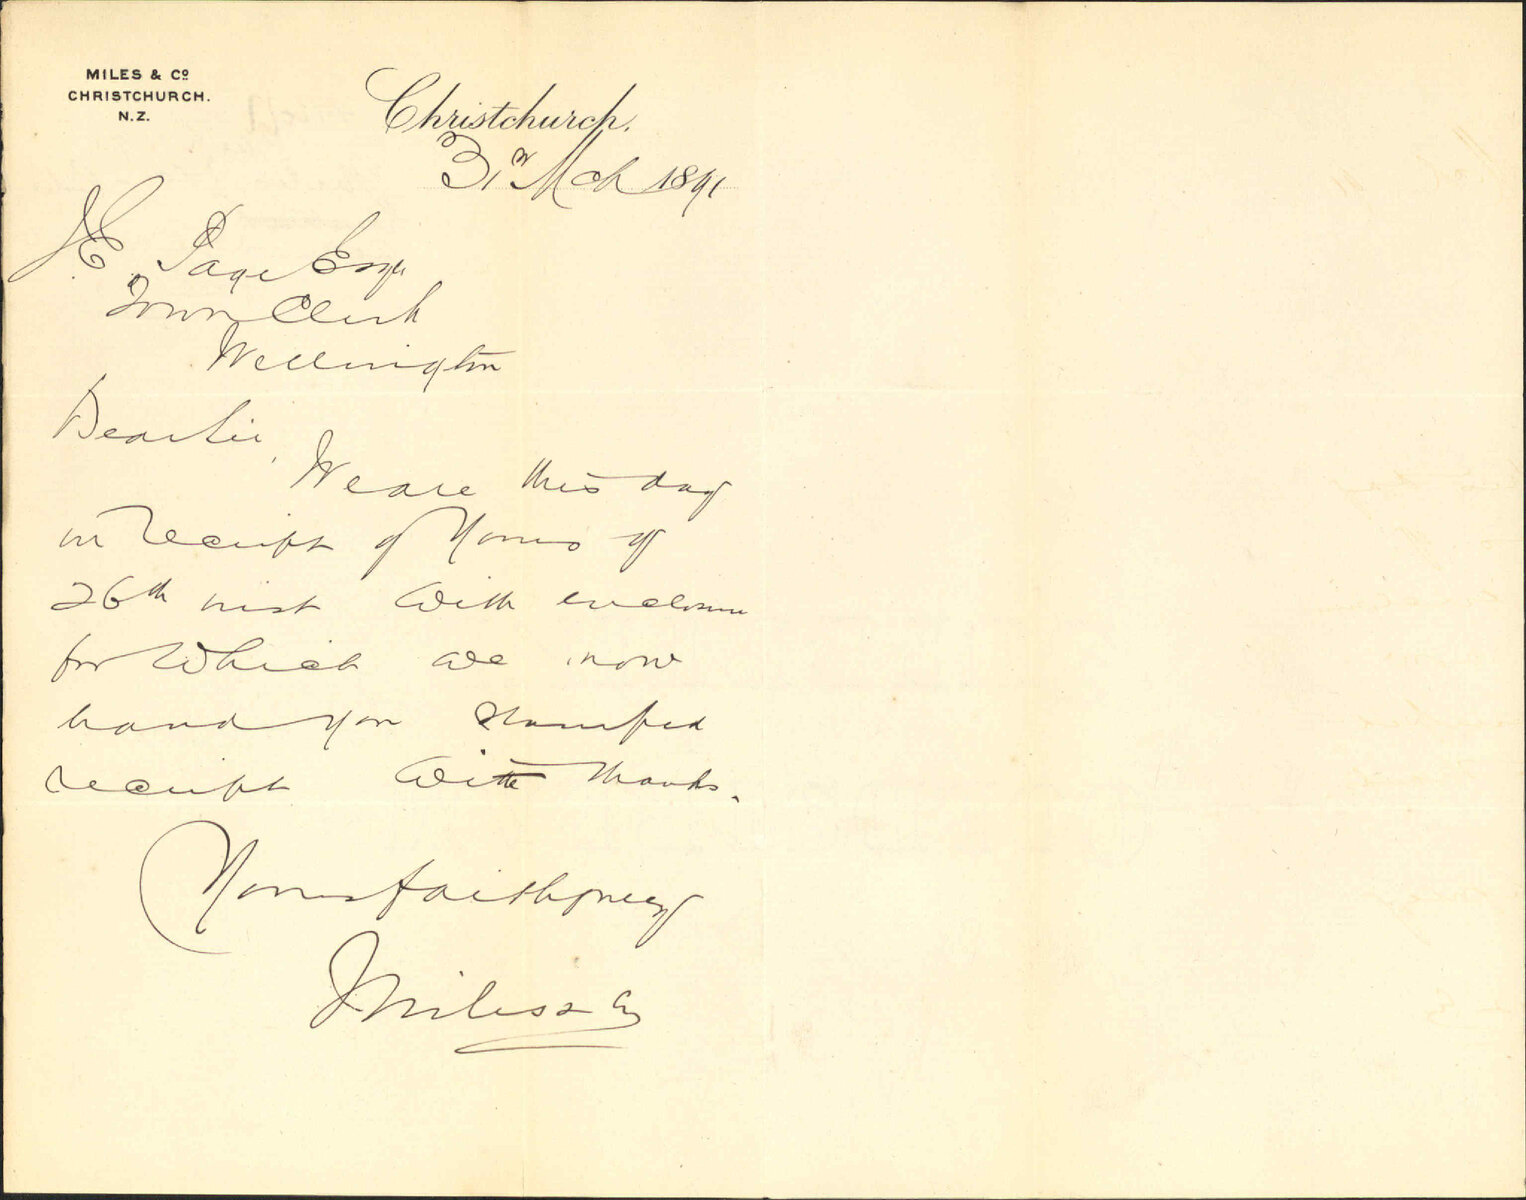 MILES & Co
CHRISTCHURCH.
N.Z.
Christchurch.
31st Mch 1891
J.E. Page Esqr
Town Clerk
Wellington
Dear Sir,
We are this day
in receipt of Yours of
26th inst with enclosure
for which we now
hand you stamped
receipt with thanks.
Yours faithfully
Miles & Co